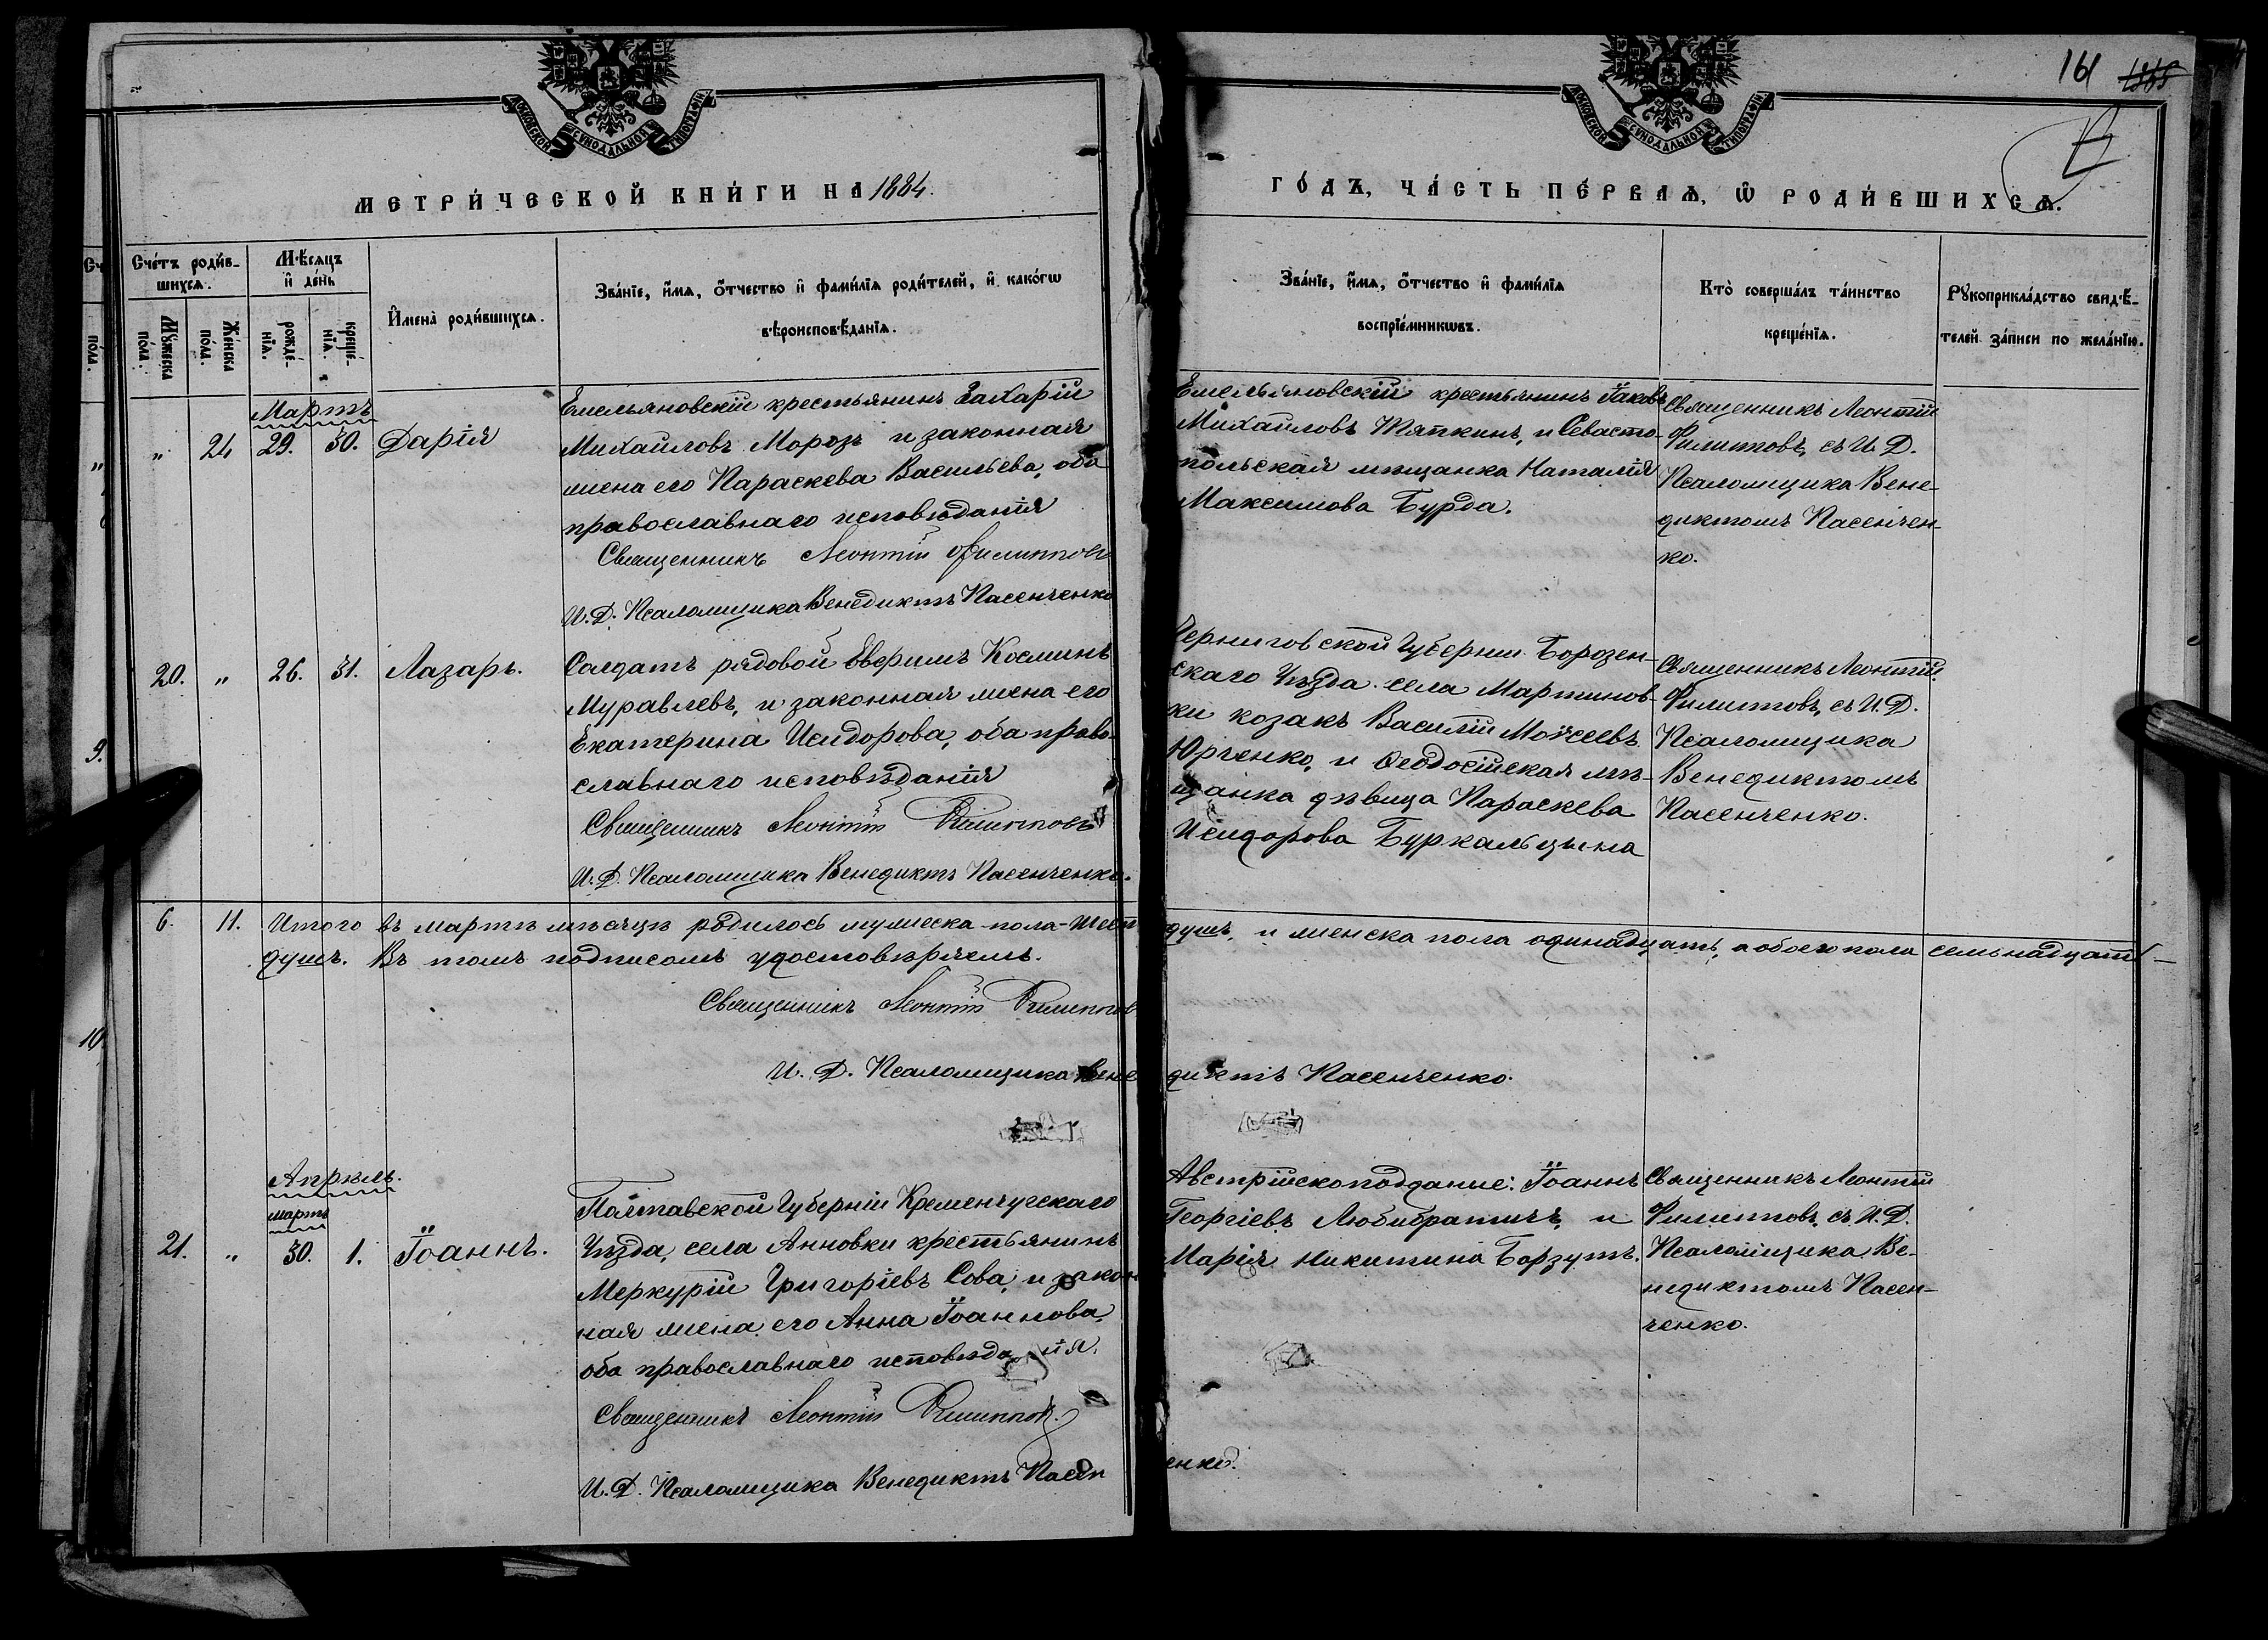 161
МОСКОВСКОЙ СѴНОДАЛЬНОЙ ТИПОГРАФІИ
МОСКОВСКОЙ СѴНОДАЛЬНОЙ ТИПОГРАФІИ
МЕТРИ́ЧЕСКОЙ КНИ́ГИ НА 1884.
ГО́ДЪ, ЧА́СТЬ ПЕ́РВАѦ, Ѡ РОДИ́ВШИХСѦ.
Сче́тъ роди́в-
шихсѧ.
Мꙋжеска
по́ла.
Же́нска
по́ла.
Мѣ́сѧцъ
и҆ де́нь
рожде́-
нїѧ.
креще́-
нїѧ.
И҆мена̀ роди́вшихсѧ.
Зва́нїе, и҆́мѧ, ѻ҆́тчество и҆ фами́лїѧ роди́телей, и҆ како́гѡ
вѣроисповѣ́данїѧ.
Зва́нїе, и҆́мѧ, ѻ҆́тчество и҆ фами́лїѧ
воспрїе́мникѡвъ.
Кто̀ соверша́лъ та́инство
креще́нїѧ.
Рꙋкоприкла́дство свидѣ́-
телей за́писи по жела́нїю.
Мартъ
" 24 29. 30. Дарія
Емельяновскій крестьянинъ Захарій
Михайловъ Морозъ и законная
жена его Параскева Васильева, оба
православнаго исповѣданія
Священникъ Леонтій Филипповъ
И. Д. Псаломщика Венедиктъ Пасенченко
Емельяновскій крестьянинъ Іаковъ
Михайловъ Тяпкинъ, и Севасто-
польская мѣщанка Наталія
Максимова Бурда.
Священникъ Леонтій
Филипповъ, съ И. Д.
Псаломщика Вене-
диктомъ Пасенчен-
ко.
20. " 26. 31. Лазарь.
Солдатъ рядовой Евфимъ Косминъ
Муравлевъ, и законная жена его
Екатерина Исидорова, оба право-
славнаго исповѣданія
Священникъ Леонтій Филипповъ
И. Д. Псаломщика Венедиктъ Пасенченко.
Черниговской Губерніи Борозен-
скаго Уѣзда села Мартинов-
ки козакъ Василій Моѵсеевъ
Юрченко, и Ѳеодосійская мѣ-
щанка дѣвица Параскева
Исидорова Буркальцына
Священникъ Леонтій
Филипповъ, съ И. Д.
Псаломщика
Венедиктомъ
Пасенченко.
6. 11. Итого въ мартѣ мѣсяцѣ родилось мужеска пола - шесть душъ, и женска пола одинадцать, а обоего пола семьнадцать
душъ. Въ томъ подписомъ удостовѣряемъ.
Священникъ Леонтій Филиппов
И. Д. Псаломщика Венедиктъ Пасенченко.
Апрѣль.
Мартъ
21. " 30. 1. Іоаннъ.
Полтавской Губерніи Кременчугскаго
Уѣзда, села Анновки крестьянинъ
Меркурій Григоріевъ Сова, и закон
ная жена его Анна Іоаннова,
оба православнаго исповѣданія.
Священникъ Леонтій Филиппов.
И. Д. Псаломщика Венедиктъ Пасенченко.
Австрійскоподдание: Іоаннъ
Георгіевъ Любибратичъ, и
Марія Никитина Борзутъ.
Священникъ Леонтій
Филипповъ, съ И. Д.
Псаломщика Ве-
недиктомъ Пасен-
ченко.
9.
10.